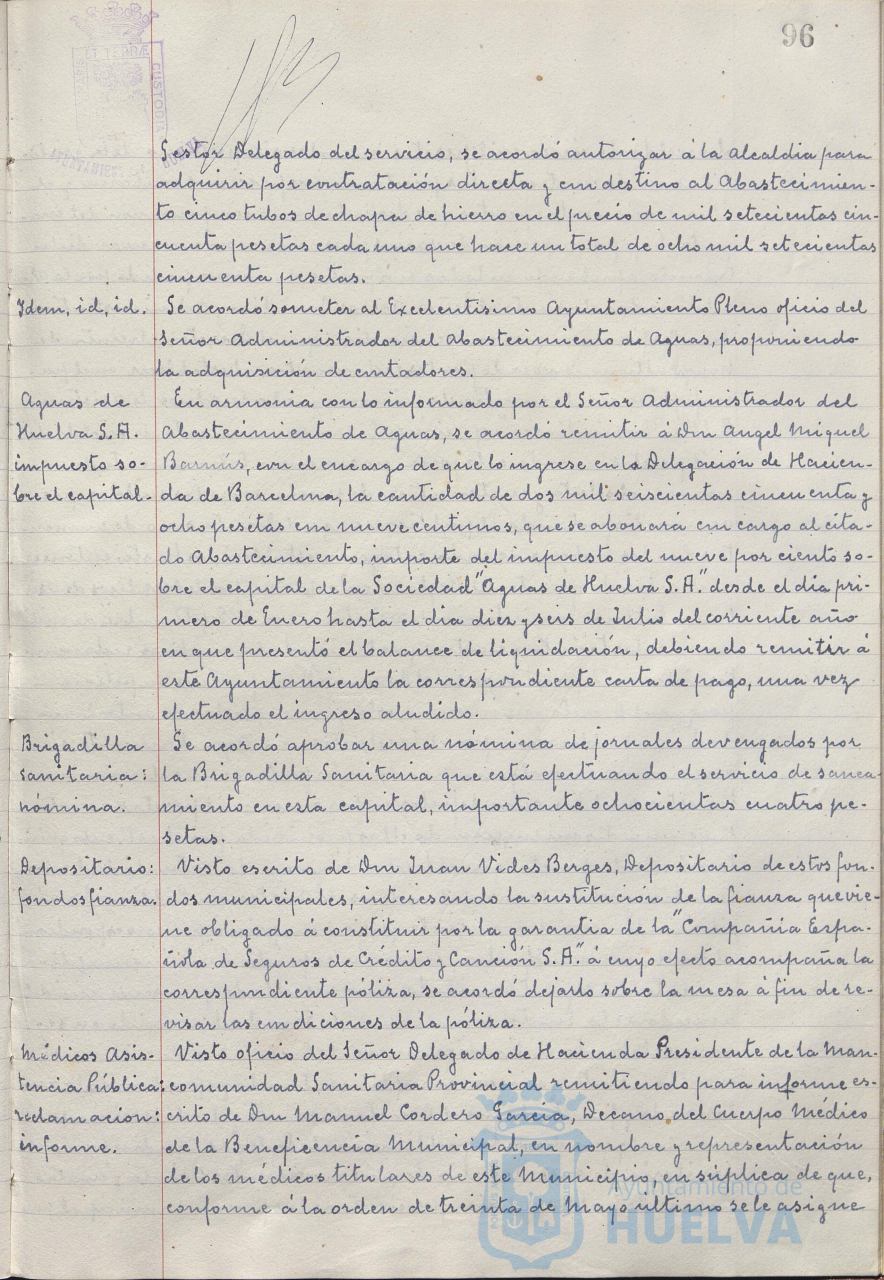 96
Gestor Delegado del servicio, se acordó autorizar á la Alcaldia para
adquirir por contratación directa y con destino al Abastecimien-
to cinco tubos de chapa de hierro en el precio de mil setecientas cin-
cuenta pesetas cada uno que hace un total de ocho mil setecientas
cincuenta pesetas.
Idem, id, id.
Se acordó someter al Excelentisimo Ayuntamiento Pleno oficio del
Señor Administrador del Abastecimiento de Aguas, proponiendo
la adquisición de contadores.
Aguas de
Huelva S.A.
impuesto so-
bre el capital.
En armonia con lo informado por el Señor Administrador del
Abastecimiento de Aguas, se acordó remitir á Don Angel Miguel
Barnús, con el encargo de que lo ingrese en la Delegación de Hacien-
da de Barcelona, la cantidad de dos mil seiscientas cincuenta y
ocho pesetas con nueve centimos, que se abonará con cargo al cita-
do Abastecimiento, importe del impuesto del nueve por ciento so-
bre el capital de la Sociedad "Aguas de Huelva S.A." desde el dia pri-
mero de Enero hasta el dia diez y seis de Julio del corriente año
en que presentó el balance de liquidación, debiendo remitir á
este Ayuntamiento la correspondiente carta de pago, una vez
efectuado el ingreso aludido.
Brigadilla
sanitaria:
nómina.
Se acordó aprobar una nómina de jornales devengados por
la Brigadilla Sanitaria que está efectuando el servicio de sanea-
miento en esta capital, importante ochocientas cuatro pe-
setas.
Depositario:
fondos fianza.
Visto escrito de Don Juan Vides Berges, Depositario de estos fon-
dos municipales, interesando la sustitución de la fianza que vie-
ne obligado á constituir por la garantia de la "Compañia Espa-
ñola de Seguros de Crédito y Canción S.A." á cuyo efecto acompaña la
correspondiente póliza, se acordó dejarlo sobre la mesa á fin de re-
visar las condiciones de la póliza.
Médicos Asis-
tencia Pública:
reclamacion:
informe.
Visto oficio del Señor Delegado de Hacienda Presidente de la Man-
comunidad Sanitaria Provincial remitiendo para informe es-
crito de Don Manuel Cordero Garcia, Decano del Cuerpo Médico
de la Beneficencia Municipal, en nombre y representación
de los médicos titulares de este Municipio, en súplica de que,
conforme á la orden de treinta de Mayo último se le asigne
Ayuntamiento de
HUELVA